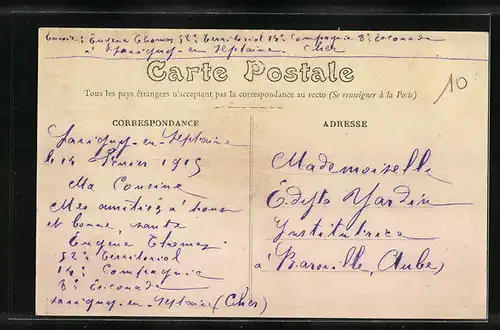 Envoie : Eugène Thomas 52e Territorial 14e Compagnie 8e Escouade
à Savigny-en-Septaine Cher
Carte Postale
Tous les pays étrangers n'acceptent pas la correspondance au recto (Se renseigner à la Poste)
10
CORRESPONDANCE
Savigny-en-Septaine
le 14 Février 1915
Ma Cousine
Mes amitiés à tous
et bonne santé
Eugène Thomas
52e Territorial
14e Compagnie
8e Escouade
Savigny-en-Septaine (Cher)
ADRESSE
Mademoiselle
Yardin
Institutrice
à Baroville, (Aube)